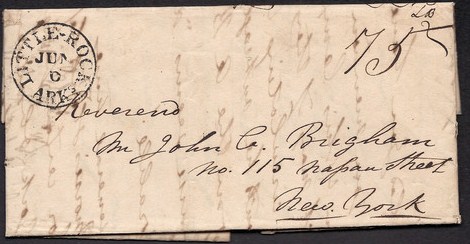 LITTLE-ROCK
JUN
6
ARK
75
Reverend
Mr John C. Brigham
No. 115 Nassau Street
New York